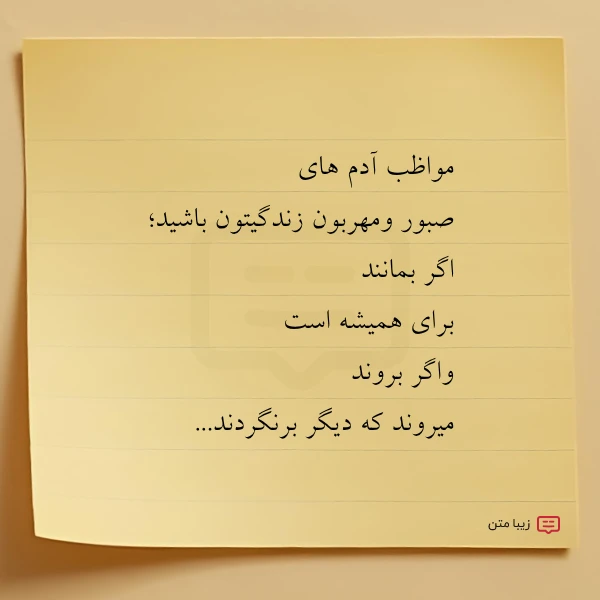 مواظب آدم های
صبور ومهربون زندگیتون باشید؛
اگر بمانند
برای همیشه است
واگر بروند
میروند که دیگر برنگردند...
زیبا متن